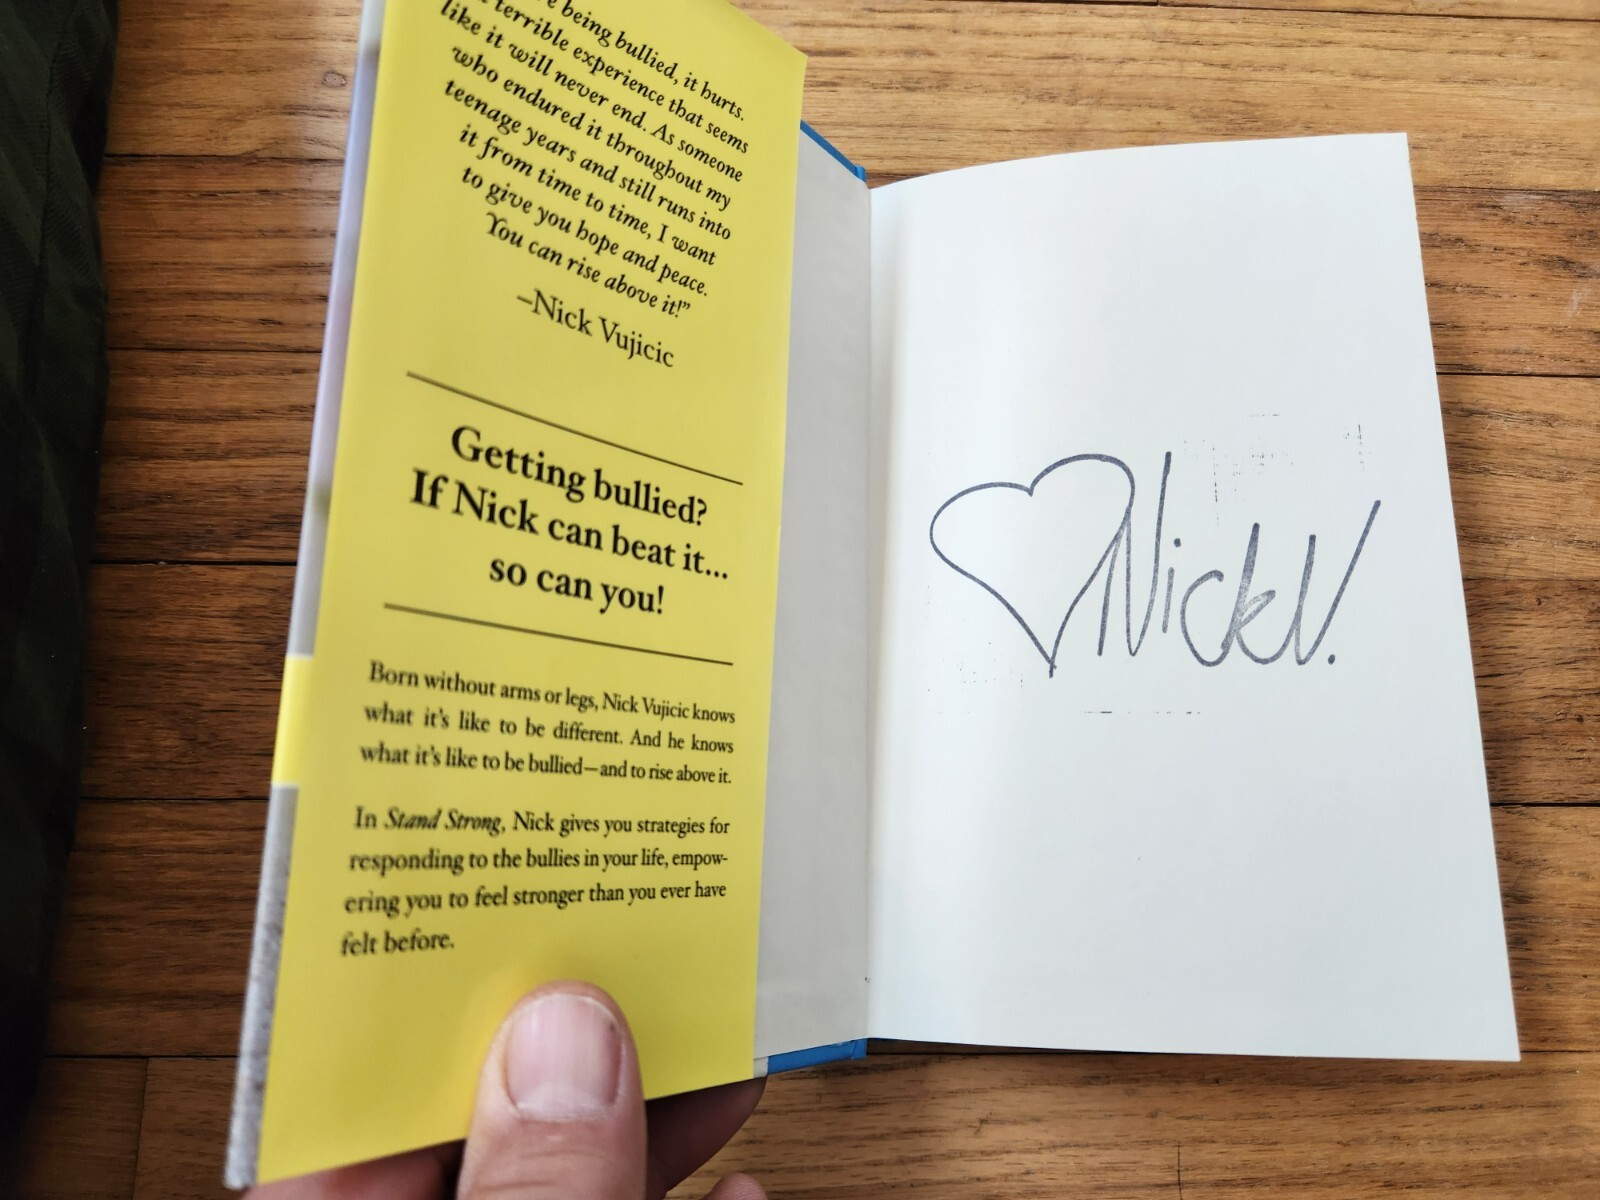 being bullied, it hurts.
terrible experience that seems
like it will never end. As someone
who endured it throughout my
teenage years and still runs into
it from time to time, I want
to give you hope and peace.
You can rise above it!”
–Nick Vujicic
Getting bullied?
If Nick can beat it...
so can you!
Born without arms or legs, Nick Vujicic knows
what it’s like to be different. And he knows
what it’s like to be bullied—and to rise above it.
In Stand Strong, Nick gives you strategies for
responding to the bullies in your life, empow-
ering you to feel stronger than you ever have
felt before.
Nick V.